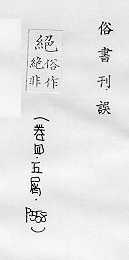 俗書刊誤
絕
俗作
絶非
(卷四.五屑.P558)